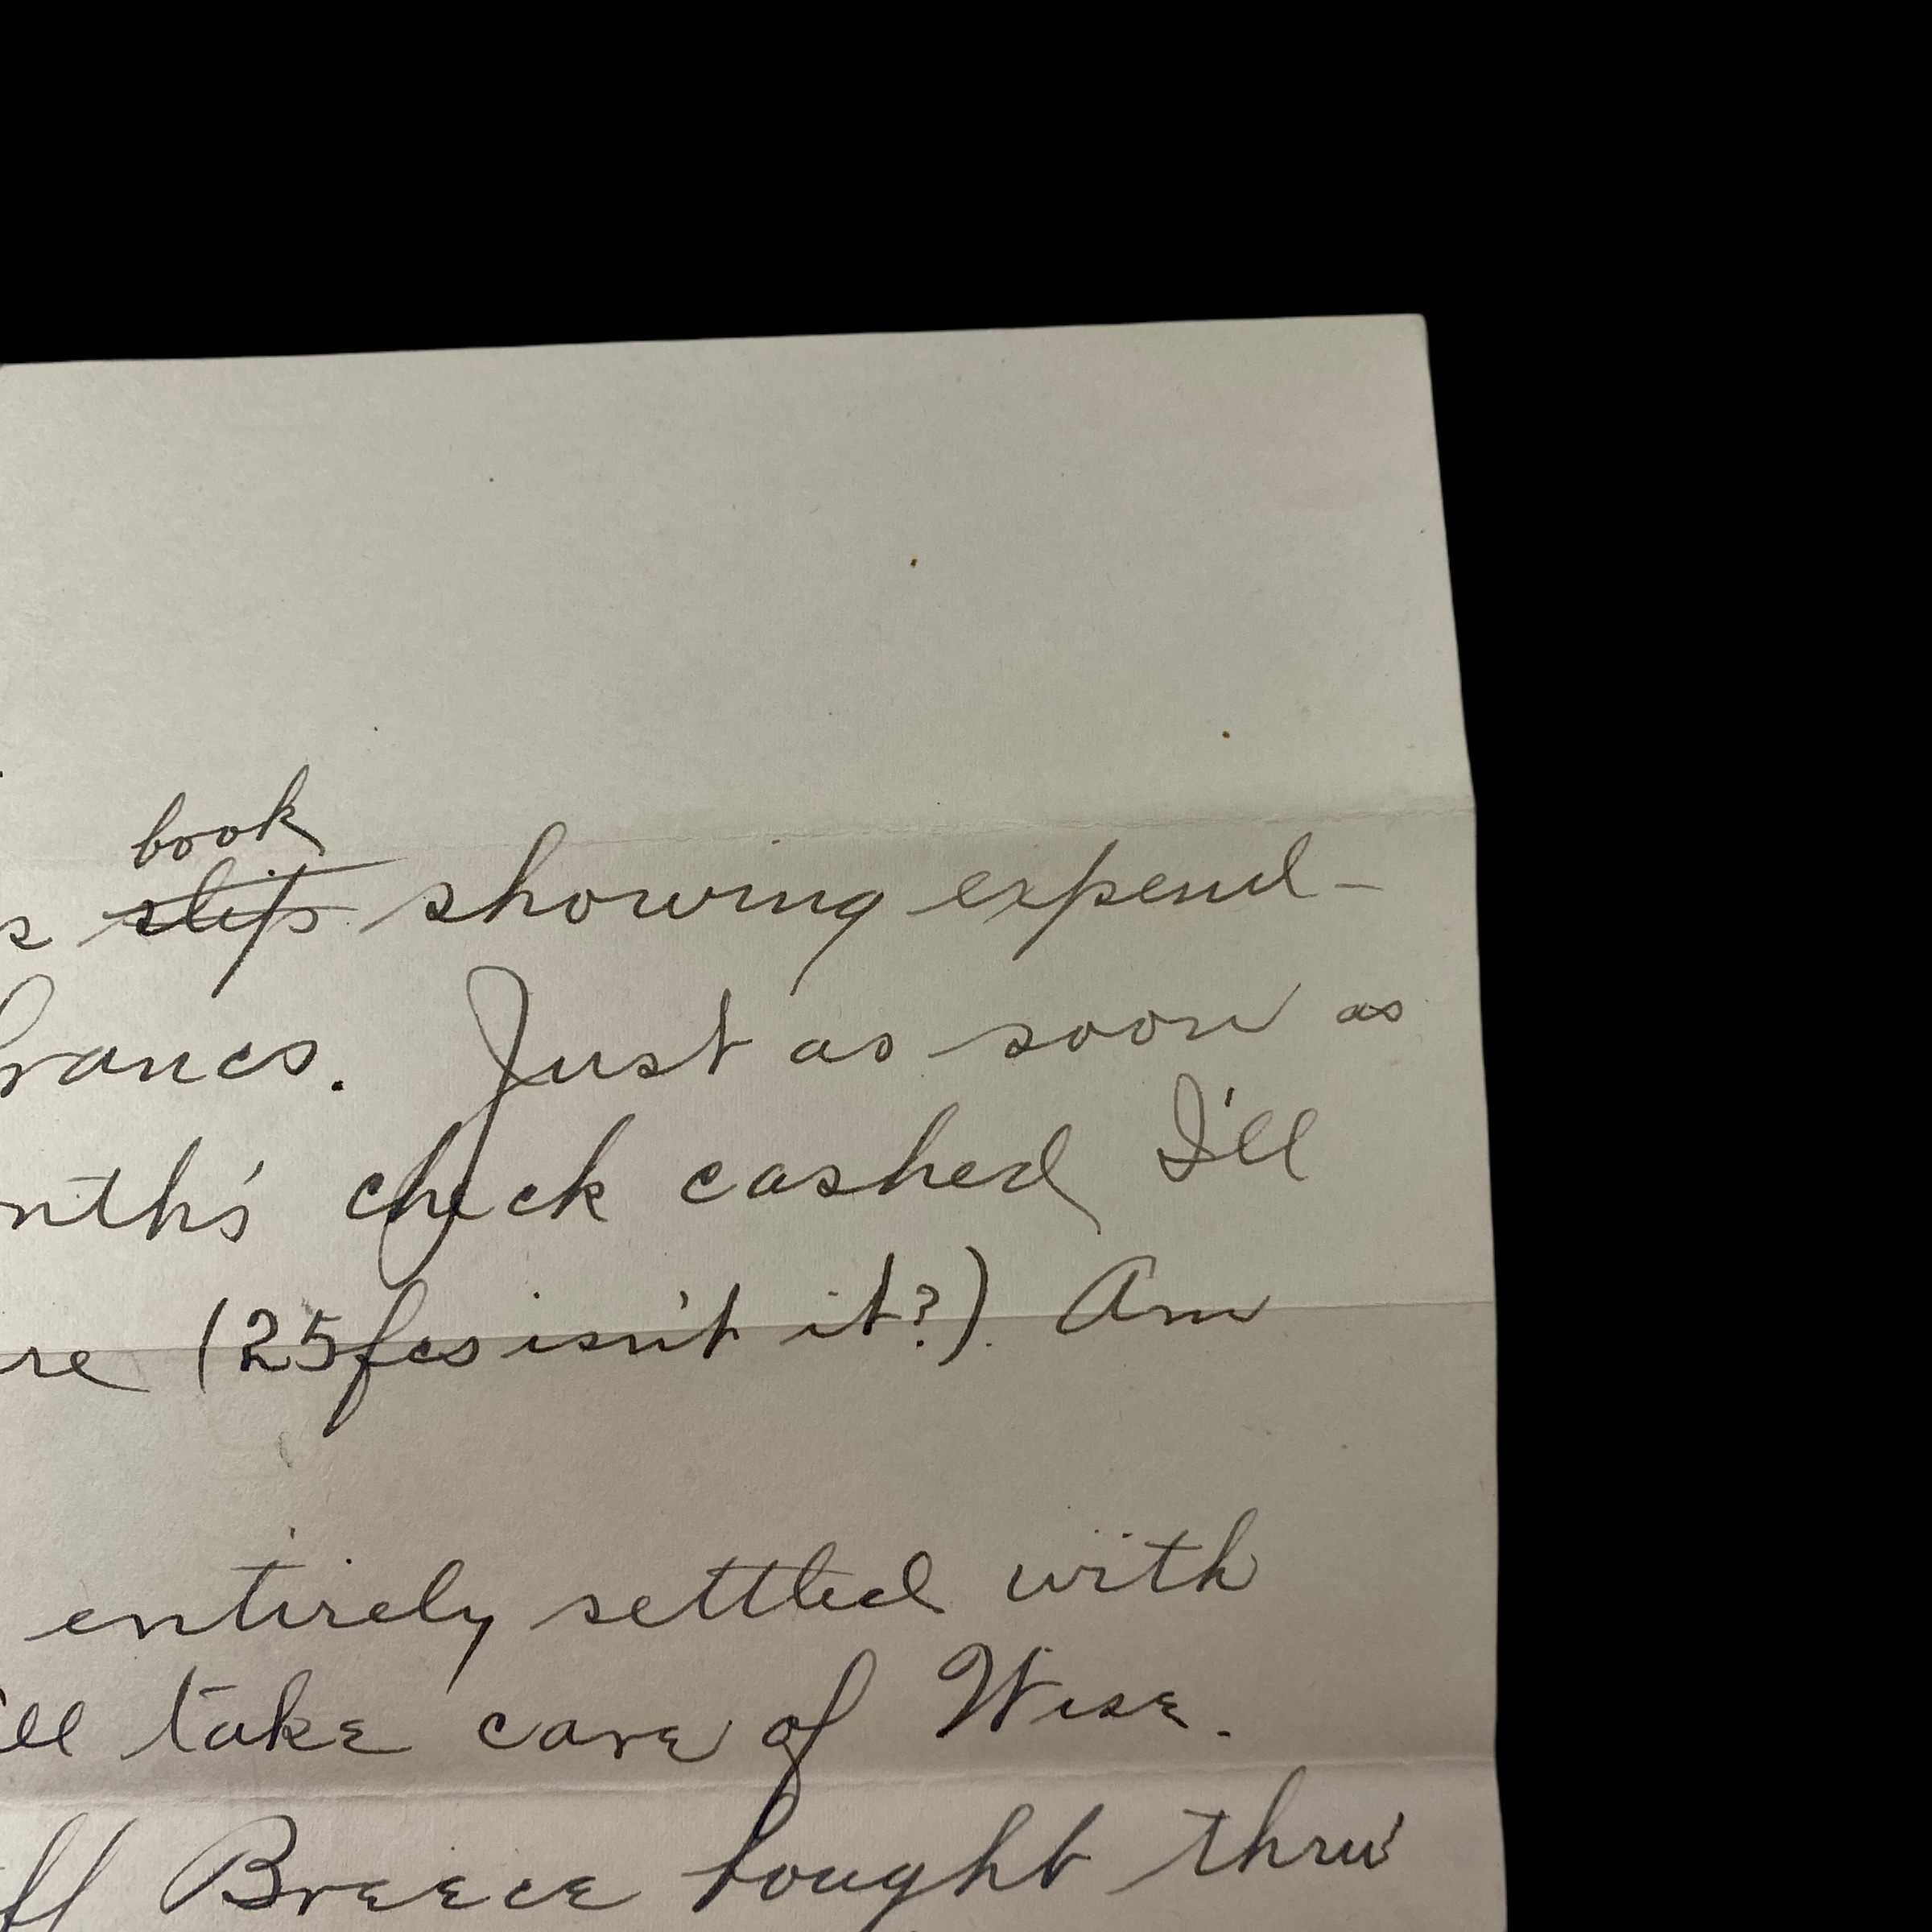 book
s slip showing expend-
francs. Just as soon as
nth's check cashed I'll
re (25fcs isn't it?). Am
entirely settled with
'll take care of Wise.
ff Breece bought thru'